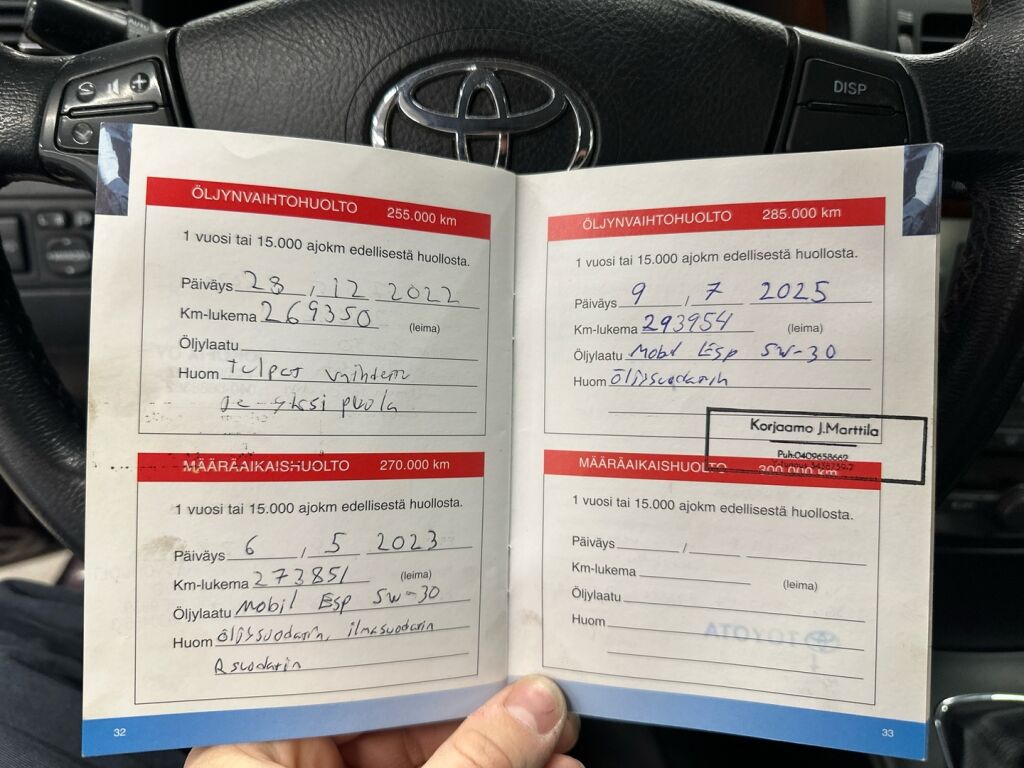 DISP
ÖLJYNVAIHTOHUOLTO 255.000 km
1 vuosi tai 15.000 ajokm edellisestä huollosta.
Päiväys 28 , 12 2022
Km-lukema 269350 (leima)
Öljylaatu
Huom Tulpat vaihdettu
ja yksi puola
MÄÄRÄAIKAISHUOLTO 270.000 km
1 vuosi tai 15.000 ajokm edellisestä huollosta.
Päiväys 6 , 5 2023
Km-lukema 273851 (leima)
Öljylaatu Mobil Esp 5w-30
Huom öljysuodatin, ilmasuodatin
Rsuodatin
32
ÖLJYNVAIHTOHUOLTO 285.000 km
1 vuosi tai 15.000 ajokm edellisestä huollosta.
Päiväys 9 , 7 2025
Km-lukema 293954 (leima)
Öljylaatu Mobil Esp 5w-30
Huom öljysuodatin
Korjaamo J.Marttila
Puh:0409658662
MÄÄRÄAIKAISHUOLTO 300.000 km
1 vuosi tai 15.000 ajokm edellisestä huollosta.
Päiväys /
Km-lukema (leima)
Öljylaatu
Huom
TOYOTA
33